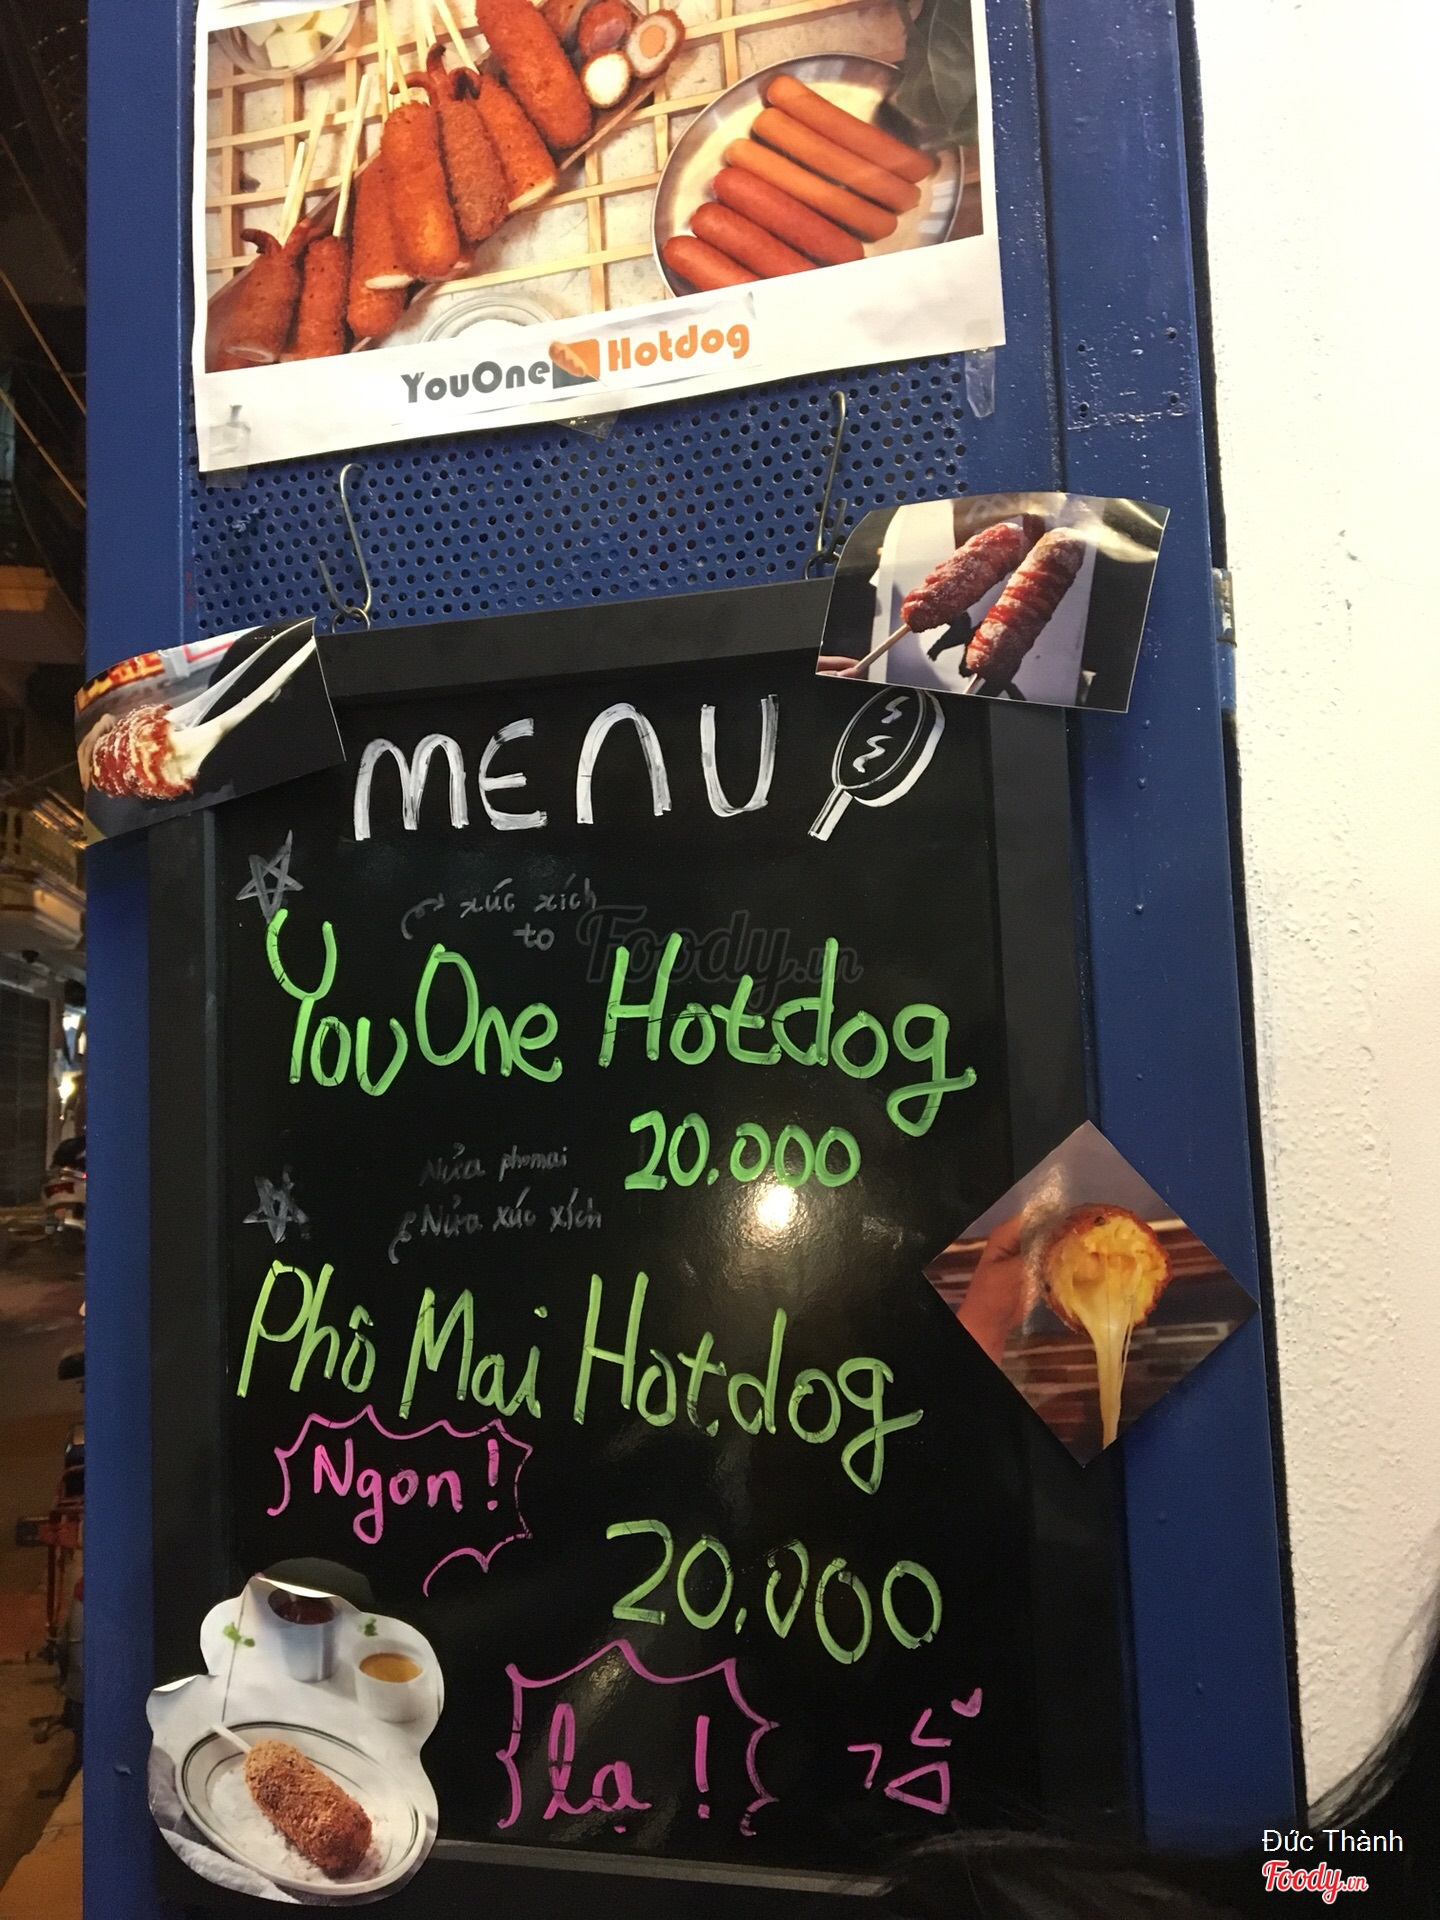 YouOne Hotdog
MENU
xúc xích
to
Foody.vn
YouOne Hotdog
20.000
Nửa phomai
Nửa xúc xích
Phô Mai Hotdog
Ngon!
20.000
lạ!
Đức Thành
Foody.vn